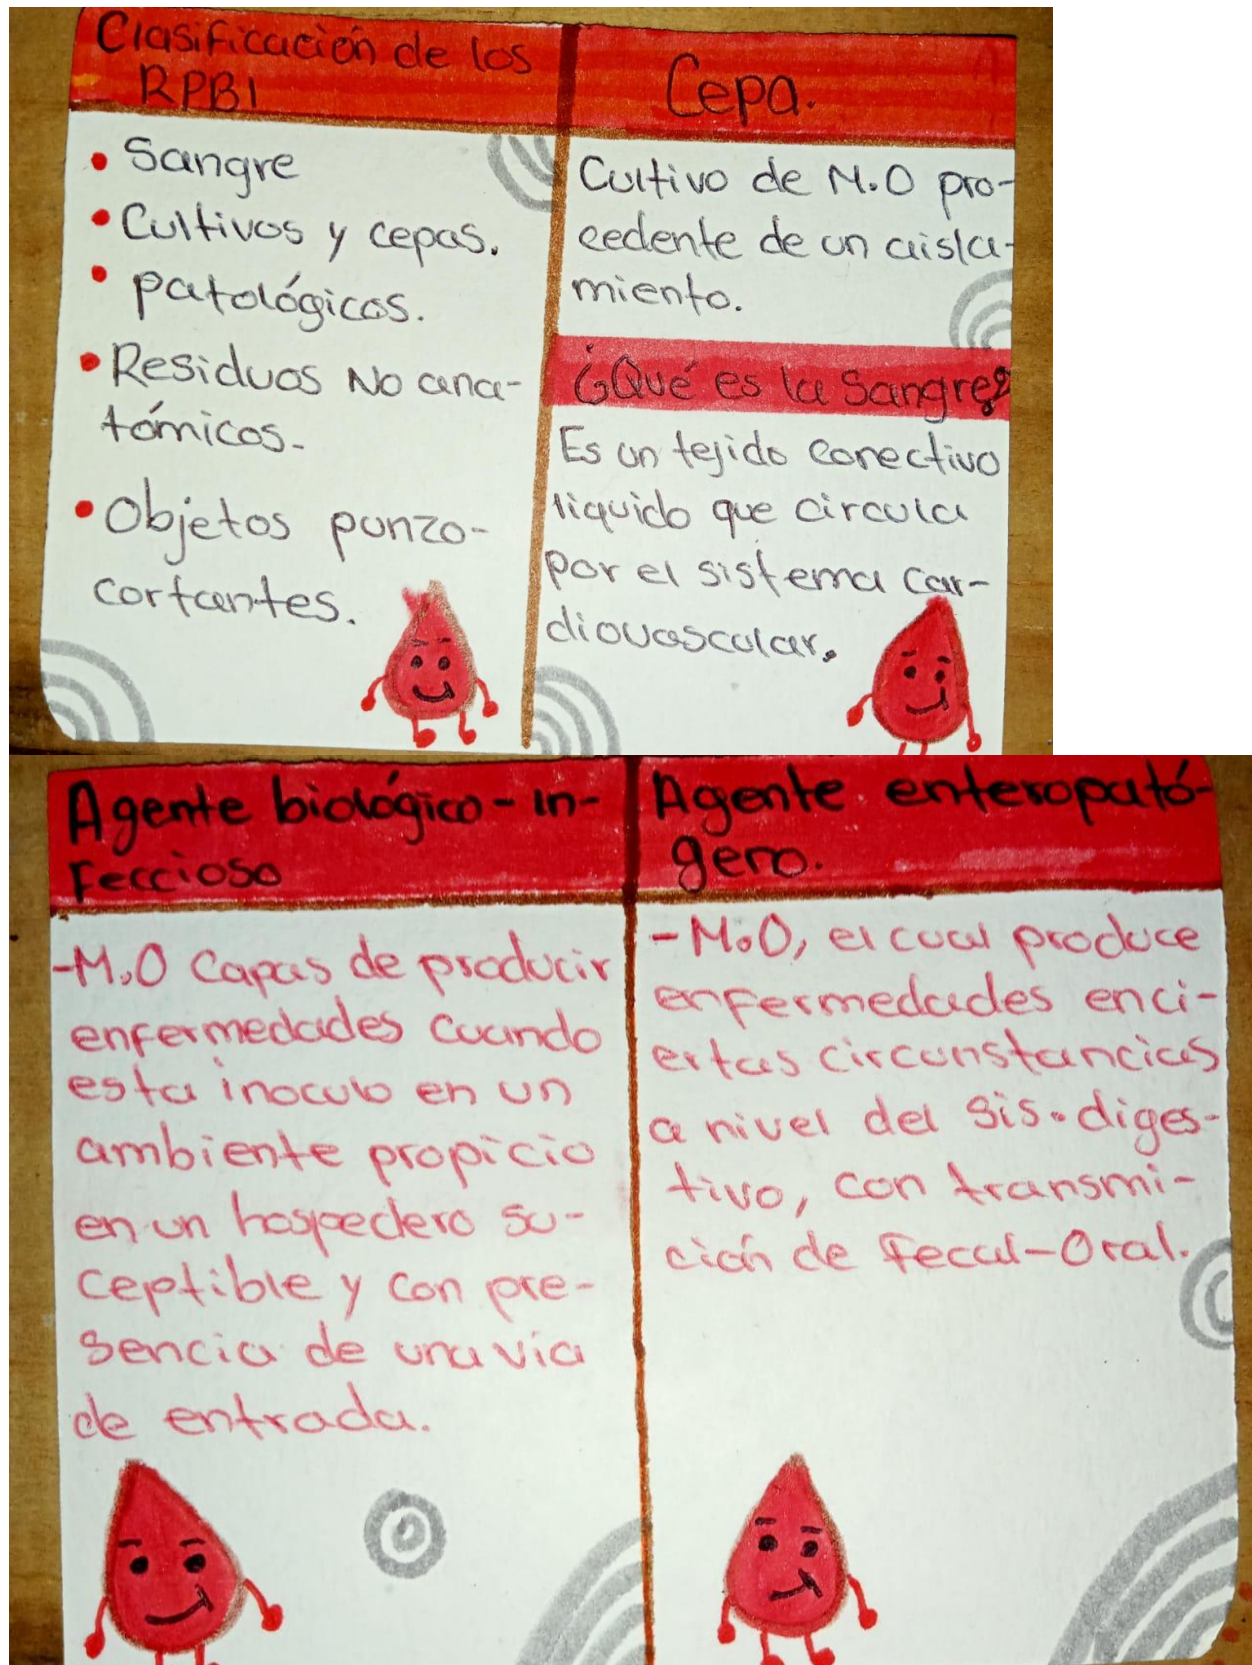 Clasificación de los
RPBI
• Sangre
• Cultivos y cepas.
• patológicos.
• Residuos No ana-
tómicos.
• Objetos punzo-
cortantes.
Cepa.
Cultivo de M.O pro-
cedente de un aisla-
miento.
¿Qué es la Sangre?
Es un tejido conectivo
liquido que circula
por el sistema car-
diovascular.
Agente biológico-in-
feccioso
-M.O Capas de producir
enfermedades cuando
esta inoculo en un
ambiente propicio
en un hospedero su-
ceptible y con pre-
sencia de una via
de entrada.
Agente enteropató-
geno.
-M.O, el cual produce
enfermedades en ci-
ertas circunstancias
a nivel del sis. diges-
tivo, con transmi-
ción de fecal-Oral.